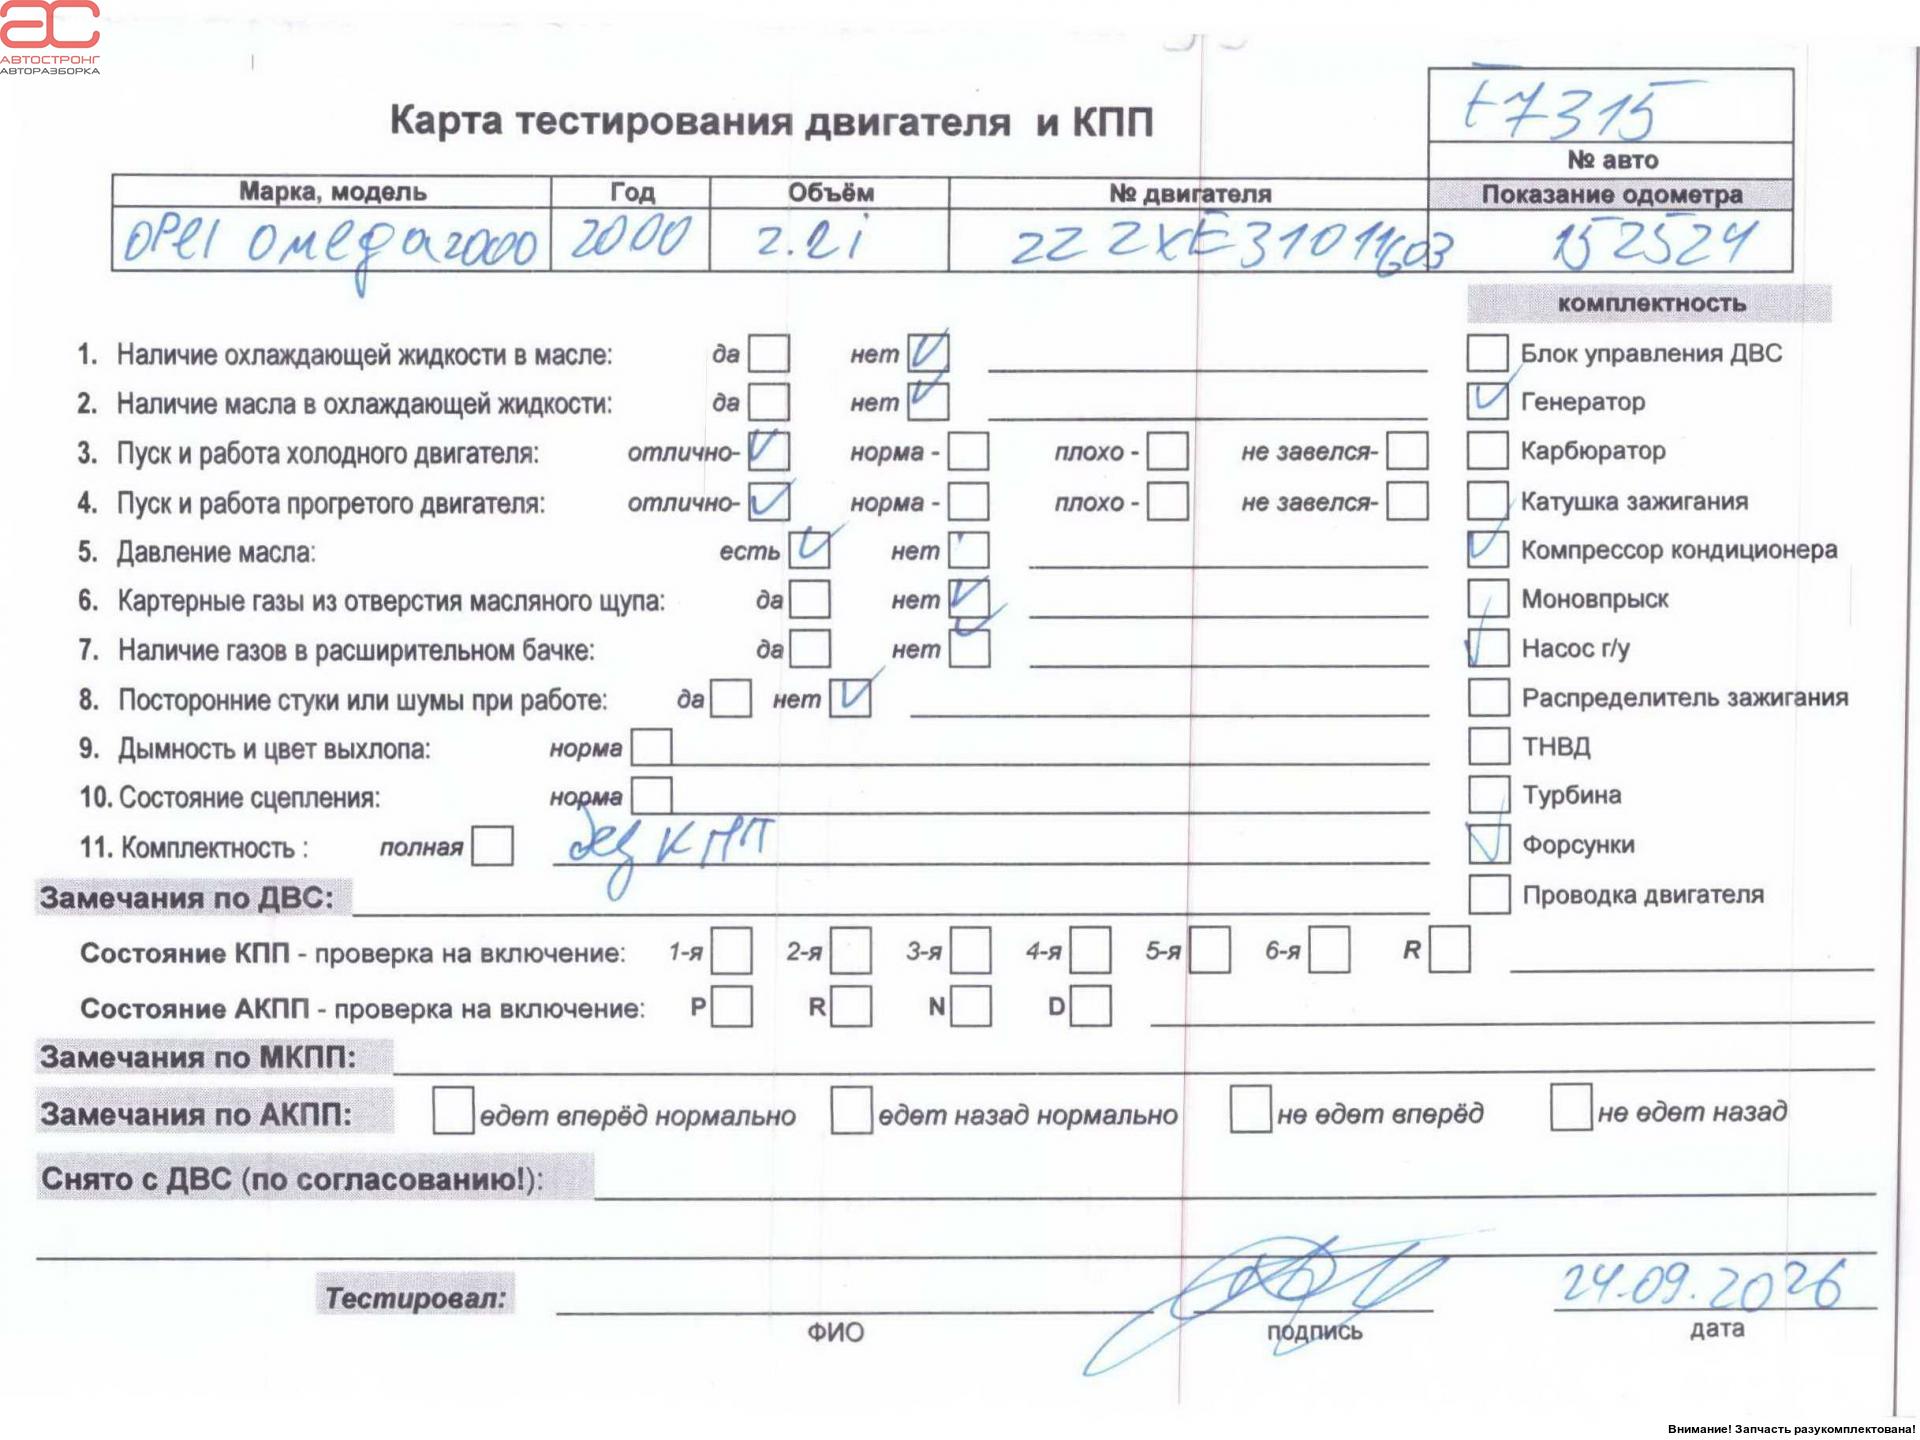 АС
АВТОСТРОНГ
АВТОРАЗБОРКА
t7315
Карта тестирования двигателя и КПП
№ авто
Марка, модель Год Объём № двигателя Показание одометра
OPel Омеga2000 2000 2.2i 152524
комплектность
1. Наличие охлаждающей жидкости в масле: да нет Блок управления ДВС
2. Наличие масла в охлаждающей жидкости: да нет Генератор
3. Пуск и работа холодного двигателя: отлично- норма - плохо - не завелся- Карбюратор
4. Пуск и работа прогретого двигателя: отлично- норма - плохо - не завелся- Катушка зажигания
5. Давление масла: есть нет Компрессор кондиционера
6. Картерные газы из отверстия масляного щупа: да нет Моновпрыск
7. Наличие газов в расширительном бачке: да нет Насос г/у
8. Посторонние стуки или шумы при работе: да нет Распределитель зажигания
9. Дымность и цвет выхлопа: норма ТНВД
10. Состояние сцепления: норма Турбина
11. Комплектность : полная без КПП Форсунки
Замечания по ДВС: Проводка двигателя
Состояние КПП - проверка на включение: 1-я 2-я 3-я 4-я 5-я 6-я R
Состояние АКПП - проверка на включение: P R N D
Замечания по МКПП:
Замечания по АКПП: едет вперёд нормально едет назад нормально не едет вперёд не едет назад
Снято с ДВС (по согласованию!):
Тестировал: 24.09.2026
ФИО подпись дата
Внимание! Запчасть разукомплектована!